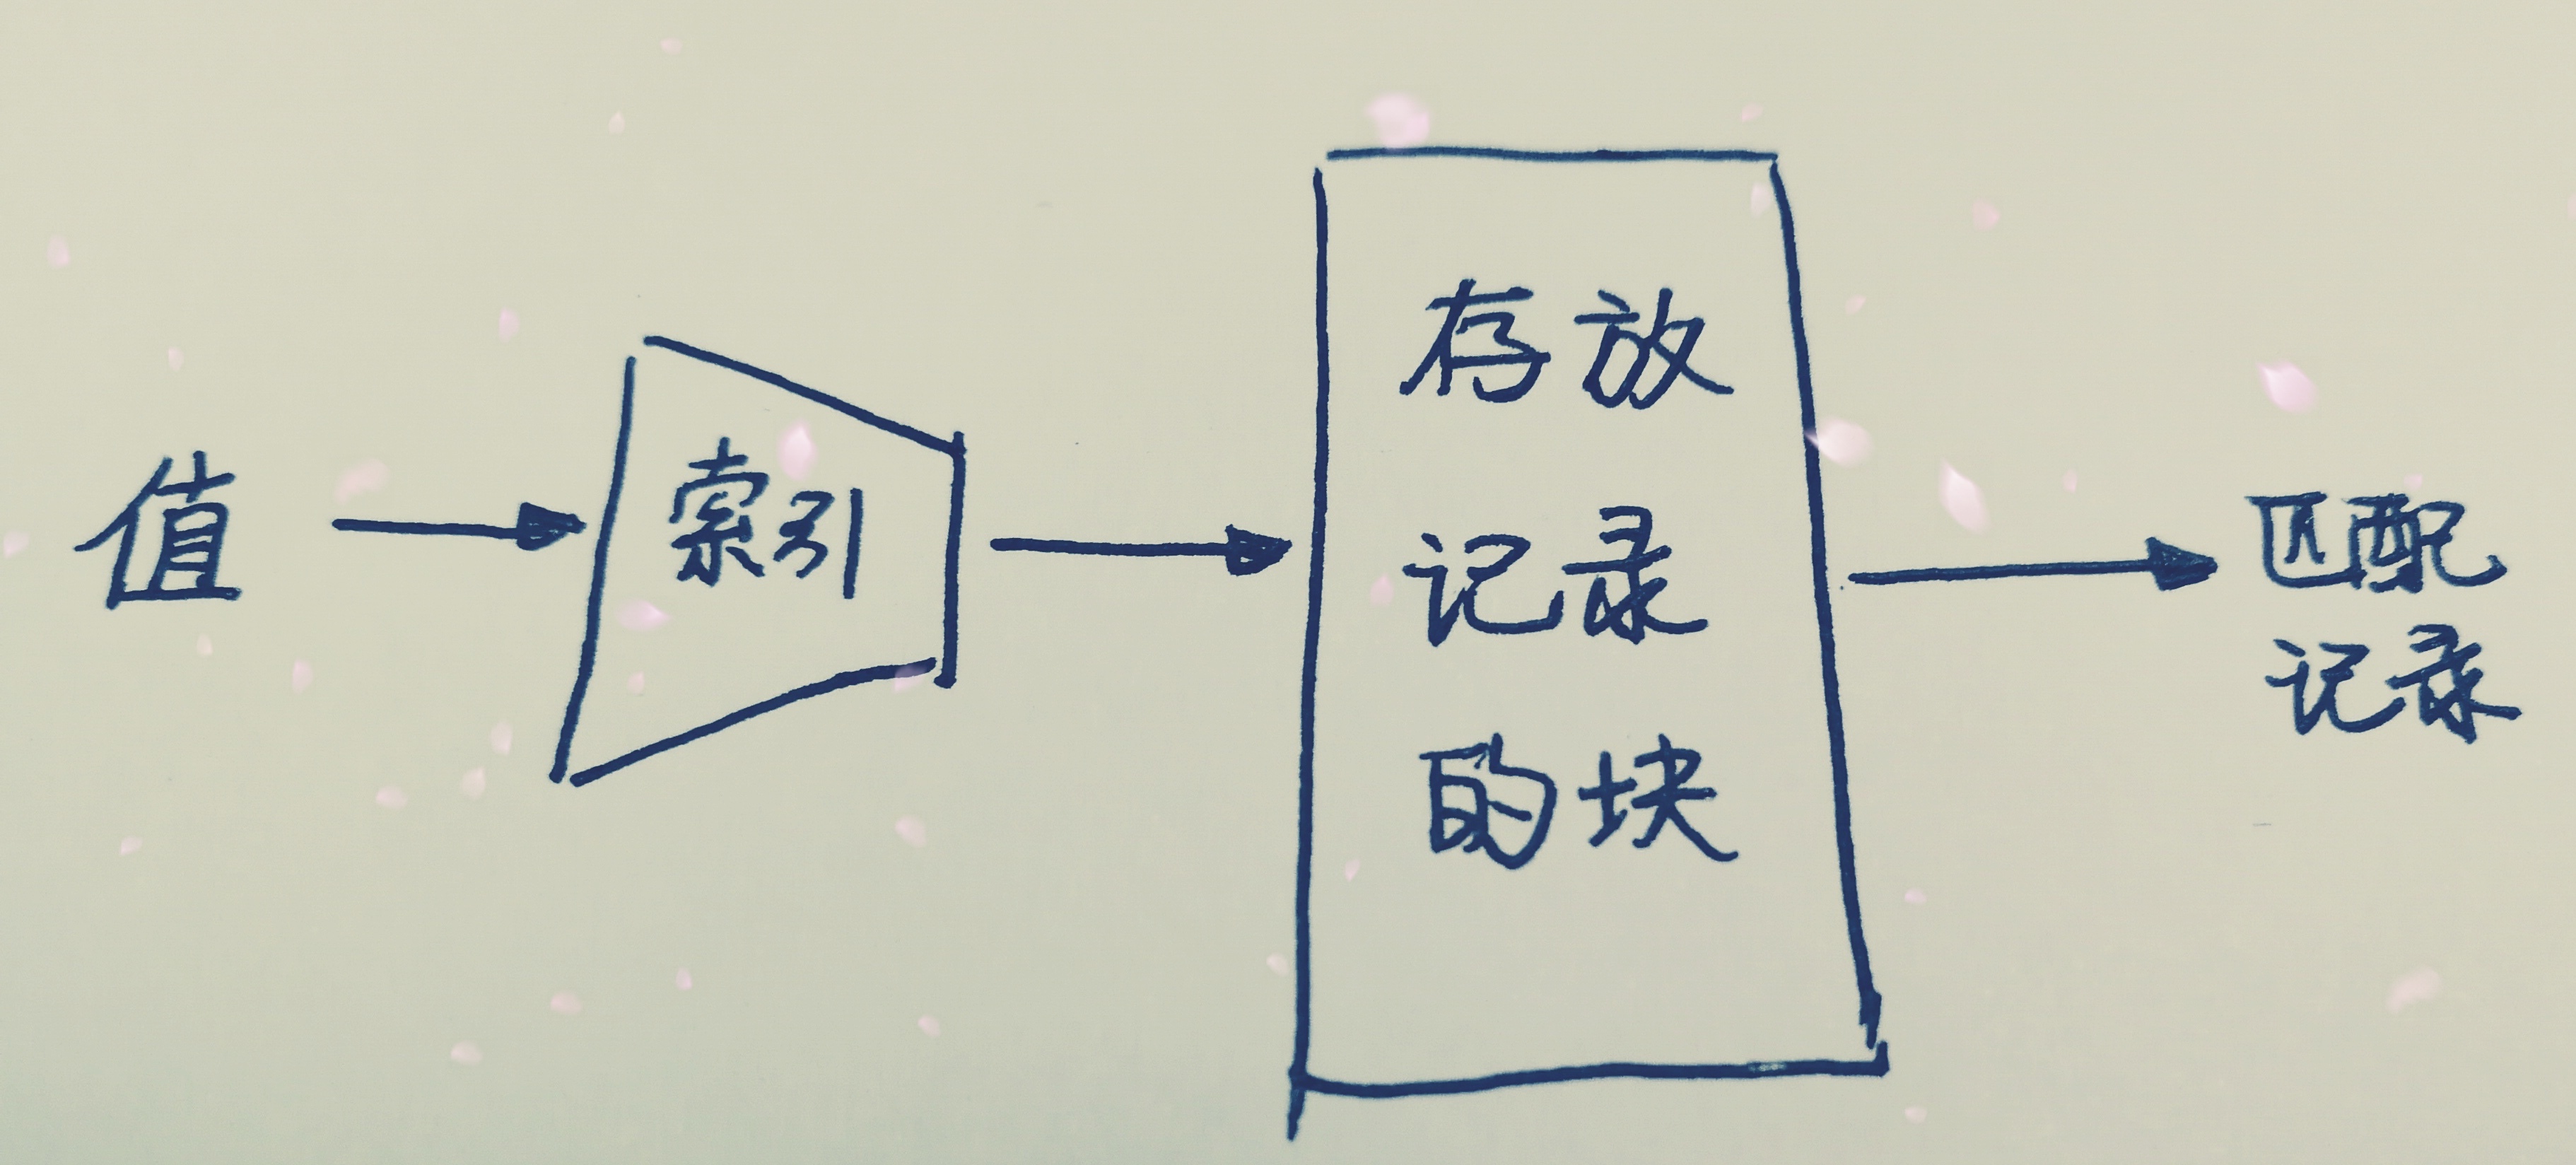 值
索引
存放
记录
的块
匹配
记录